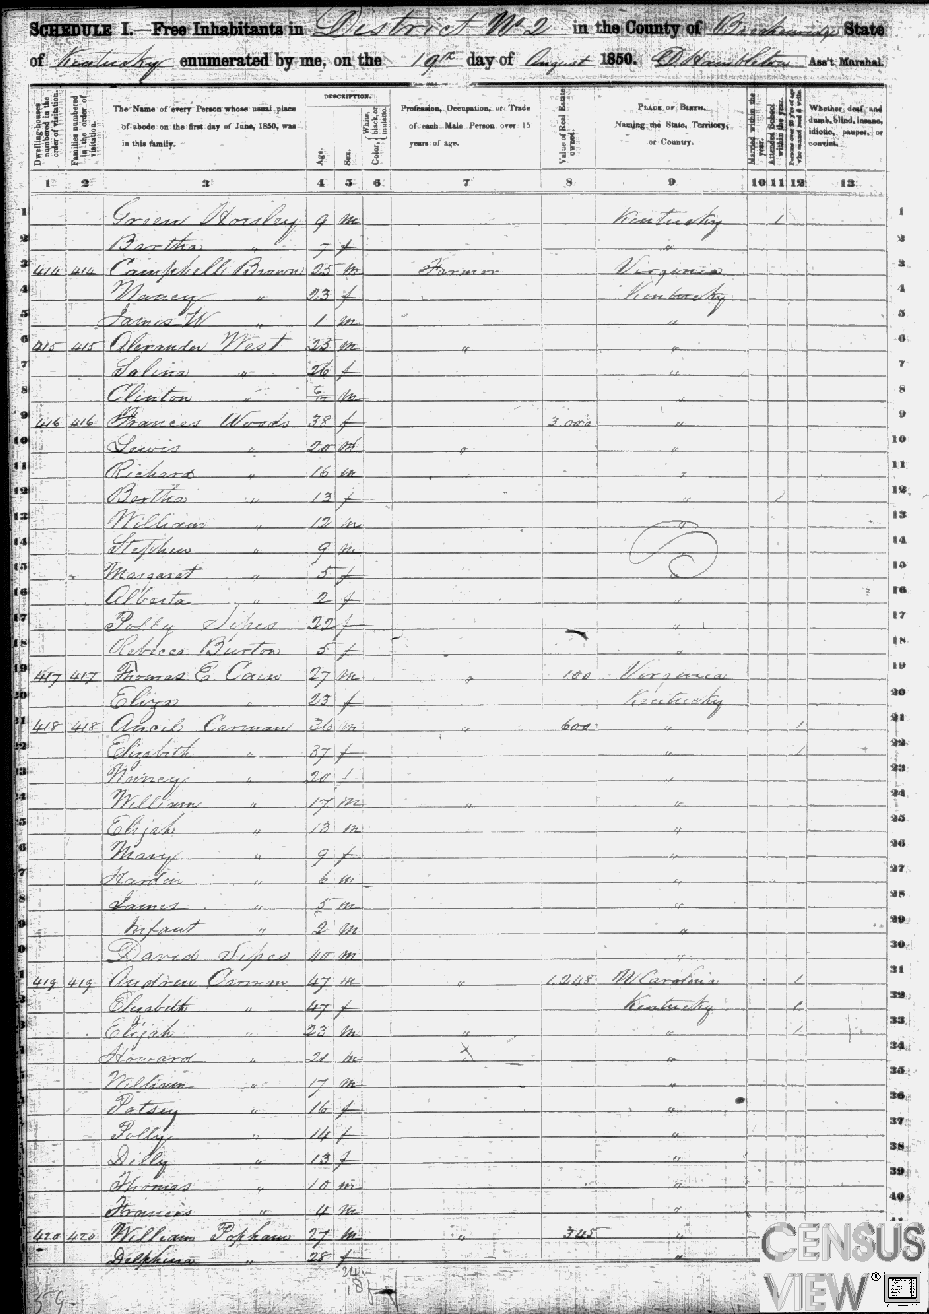 SCHEDULE I.—Free Inhabitants in District No 2 in the County of Breckenridge State
of Kentucky enumerated by me, on the 19th day of August 1850. D Hambleton Ass't Marshal.
Dwelling-houses numbered in the order of visitation.
Families numbered in the order of visitation.
The Name of every Person whose usual place of abode on the first day of June, 1850, was in this family.
DESCRIPTION.
Age.
Sex.
Color, White, black, or mulatto.
Profession, Occupation, or Trade of each Male Person over 15 years of age.
Value of Real Estate owned.
PLACE OF BIRTH. Naming the State, Territory, or Country.
Married within the year.
Attended School within the year.
Persons over 20 y'rs of age who cannot read & write.
Whether deaf and dumb, blind, insane, idiotic, pauper, or convict.
1 2 3 4 5 6 7 8 9 10 11 12 13
1 Green Horsley 9 m Kentucky 1 1
2 Bertha " 7 f " 2
3 414 414 Campbell Brown 25 m Farmer Virginia 3
4 Nancy " 23 f Kentucky 4
5 James W " 1 m " 5
6 415 415 Alexander West 23 m " " 6
7 Salina " 26 f " 7
8 Clinton " m " 8
9 416 416 Frances Woods 38 f 3000 " 9
10 Lewis " 20 m " " 10
11 Richard " 16 m " 11
12 Bertha " 13 f " 1 12
13 William " 12 m " 13
14 Stephen " 9 m 14
15 Margaret " 5 f " 15
16 Alberta " 2 f " 16
17 Polly Sipes 22 f " 17
18 Rebecca Burton 5 f " 18
19 417 417 Thomas E Cain 27 m " 100 Virginia 19
20 Eliza " 23 f Kentucky 20
21 418 418 Ancil Carman 36 m " 600 " 1 21
22 Elizabeth " 37 f " 1 22
23 Nancy " 20 f " 23
24 William " 17 m " " 24
25 Elijah " 13 m " 25
6 Mary " 9 f " 26
7 Hardin " 6 m " 27
8 James " 5 m " 28
9 Infant " 2 m " 29
0 David Sipes 40 m " 30
1 419 419 Andrew 47 m " 1.248 N Carolina 1 31
2 Elizabeth " 47 f Kentucky 1 32
3 Elijah " 23 m " " 1 33
Howard " 21 m " 34
William " 17 m " 35
Patsey " 16 f " 36
Polly " 14 f " 37
Dilly " 13 f " 38
Thomas " 10 m " 39
Francis " 4 m " 40
420 420 William Popham 27 m " 345 " 41
Delphina " 28 f "
CENSUS
VIEW®